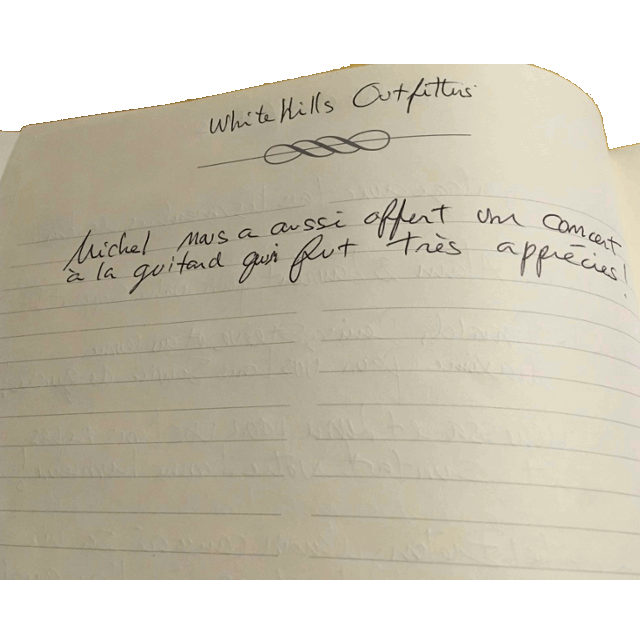 White Hills Outfitters
Michel nous a aussi offert un concert
à la guitard qui fut très apprécies!